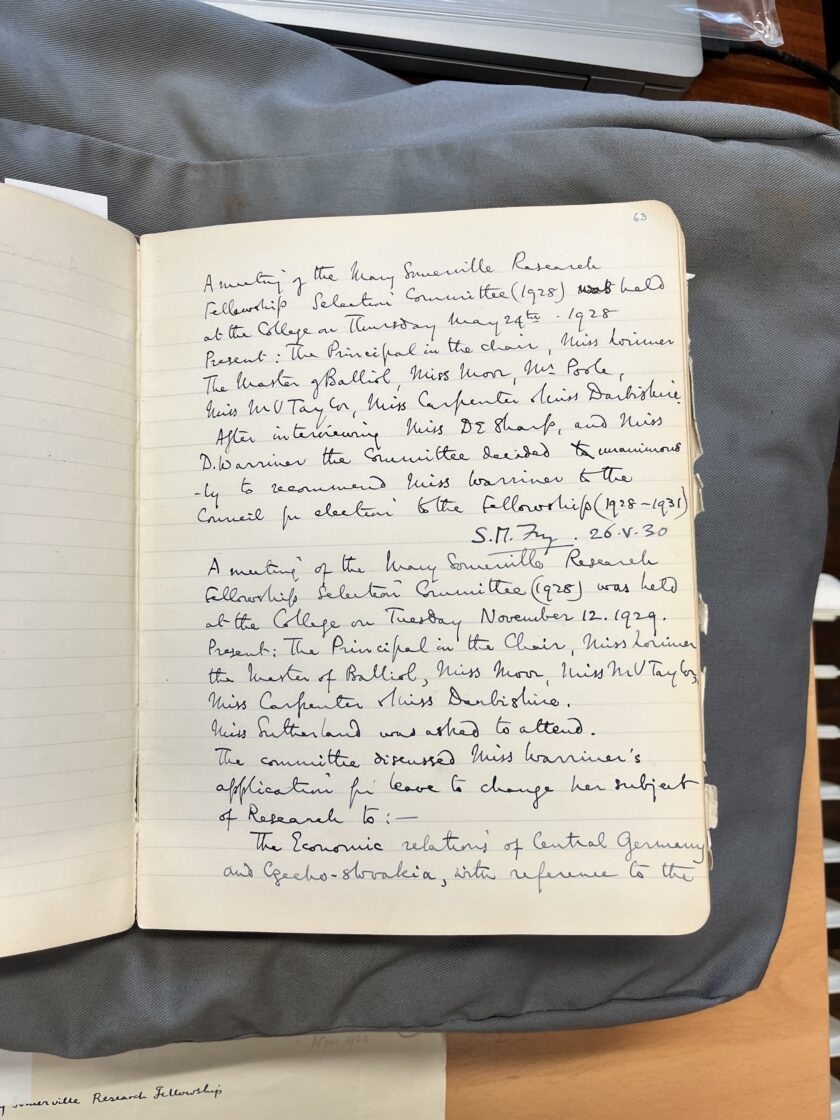 63
A meeting of the Mary Somerville Research
Fellowship Selection Committee (1928) was held
at the College on Thursday May 24th. 1928
Present: The Principal in the chair, Miss Lorimer
The Master of Balliol, Miss Moor, Mr Poole,
Miss M V Taylor, Miss Carpenter & Miss Darbishire.
After interviewing Miss D E Sharp, and Miss
D. Warriner the Committee decided to unanimous
-ly to recommend Miss Warriner to the
Council for election to the Fellowship (1928-1931)
S.M. Fry. 26.V.30
A meeting of the Mary Somerville Research
Fellowship Selection Committee (1928) was held
at the College on Tuesday November 12. 1929.
Present: The Principal in the Chair, Miss Lorimer
the Master of Balliol, Miss Moor, Miss M V Taylor,
Miss Carpenter & Miss Darbishire.
Miss Sutherland was asked to attend.
The committee discussed Miss Warriner's
application for leave to change her subject
of Research to:—
The Economic relations of Central Germany
and Czecho-slovakia, with reference to the
Somerville Research Fellowship